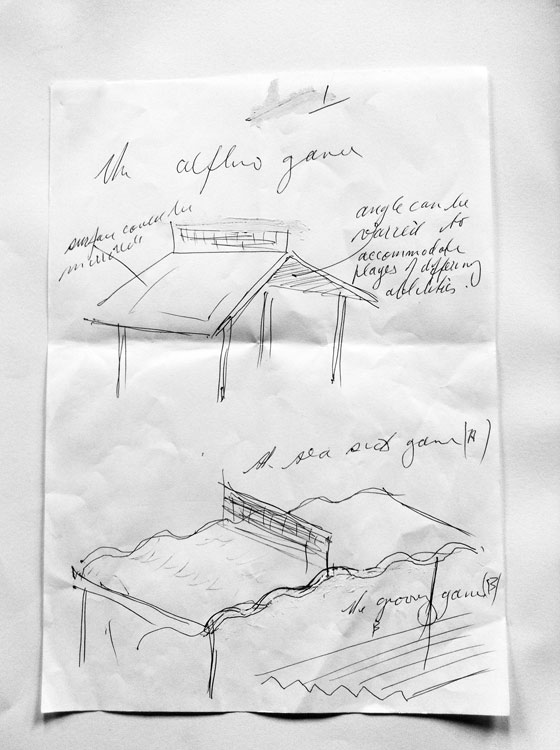 1
the game
surface could be
mirrored
angle can be
varied to
accommodate
players of differing
abilities.
the sea sick game (A)
the groovy game (B)
B